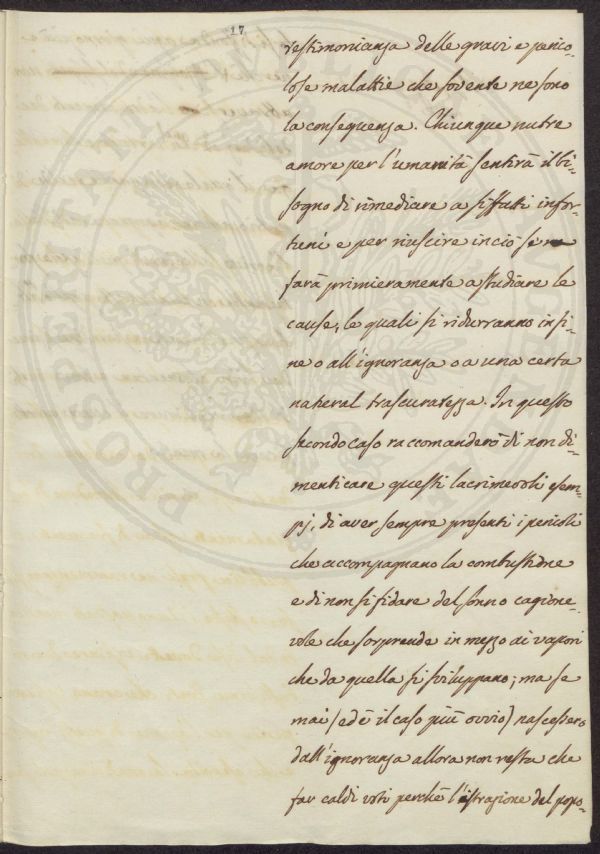 17
testimonianza delle gravi e perico-
lose malattie che sovente ne sono
la conseguenza. Chiunque nutre
amore per l'umanità sentirà il bi-
sogno di rimediare a siffatti infor-
tuni e per riuscire in ciò si
farà primieramente a studiare le
cause, le quali si ridurranno infi-
ne o all'ignoranza o a una certa
natural trascuratezza. In questo
secondo caso raccomanderò di non di-
menticare questi lacrimevoli esem-
pj, di aver sempre presenti i pericoli
che accompagnano la combustione
e di non si fidare del sonno cagione-
vole che sorprende in mezzo ai vapori
che da quella si sviluppano; ma se
mai (ed è il caso più ovvio) nascessero
dall'ignoranza allora non resta che
far caldi voti perchè l'istruzione del popo-
PROSPERITATI PUBLICAE